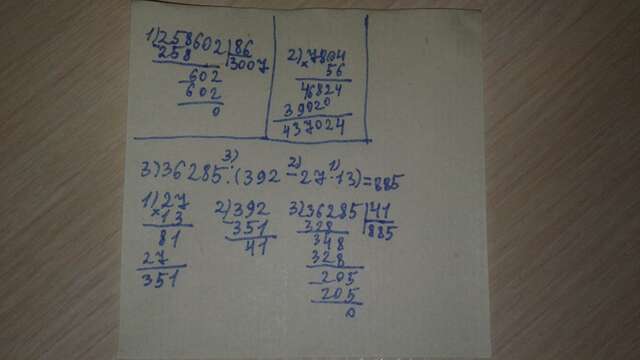 1) 258602 | 86
258 | 3007
602
602
0
2) 7804
× 56
46824
39020
437024
3) 36285 : (392 - 27 · 13) = 885
3) 2) 1)
1) 27
× 13
81
27
351
2) 392
351
41
3) 36285 | 41
328 | 885
348
328
205
205
0